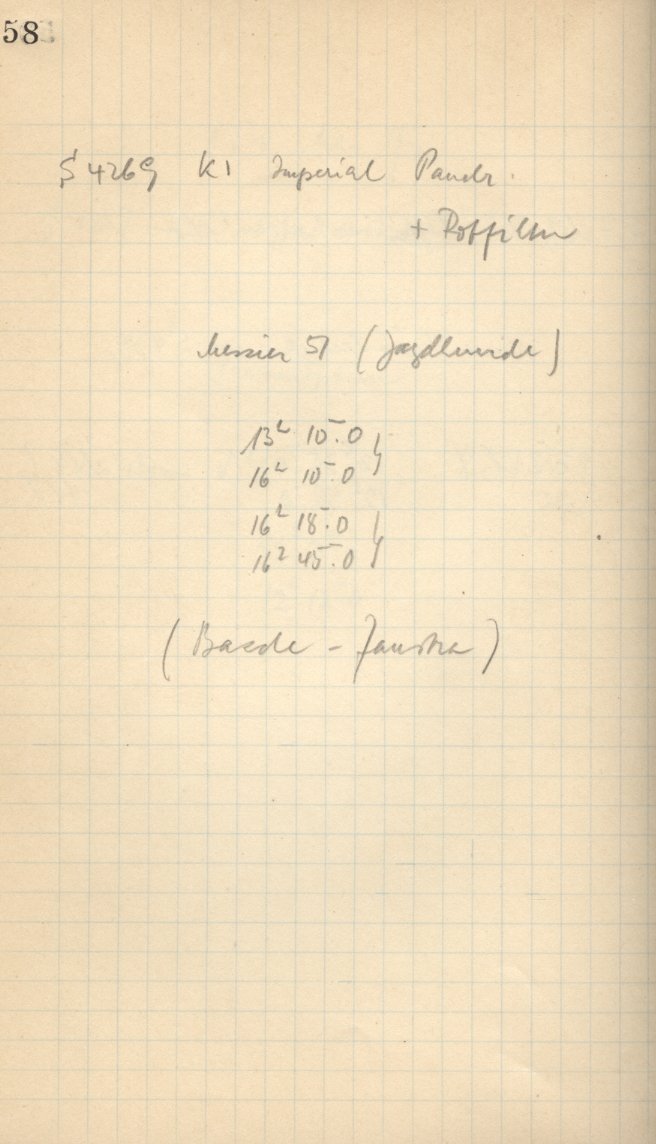 58
S 4269 K1 Imperial Panchr.
+ Rotfilter
Messier 51 (Jagdhunde)
13h 10m.0 }
16h 10m.0
16h 18m.0 }
16h 45m.0
(Baade -